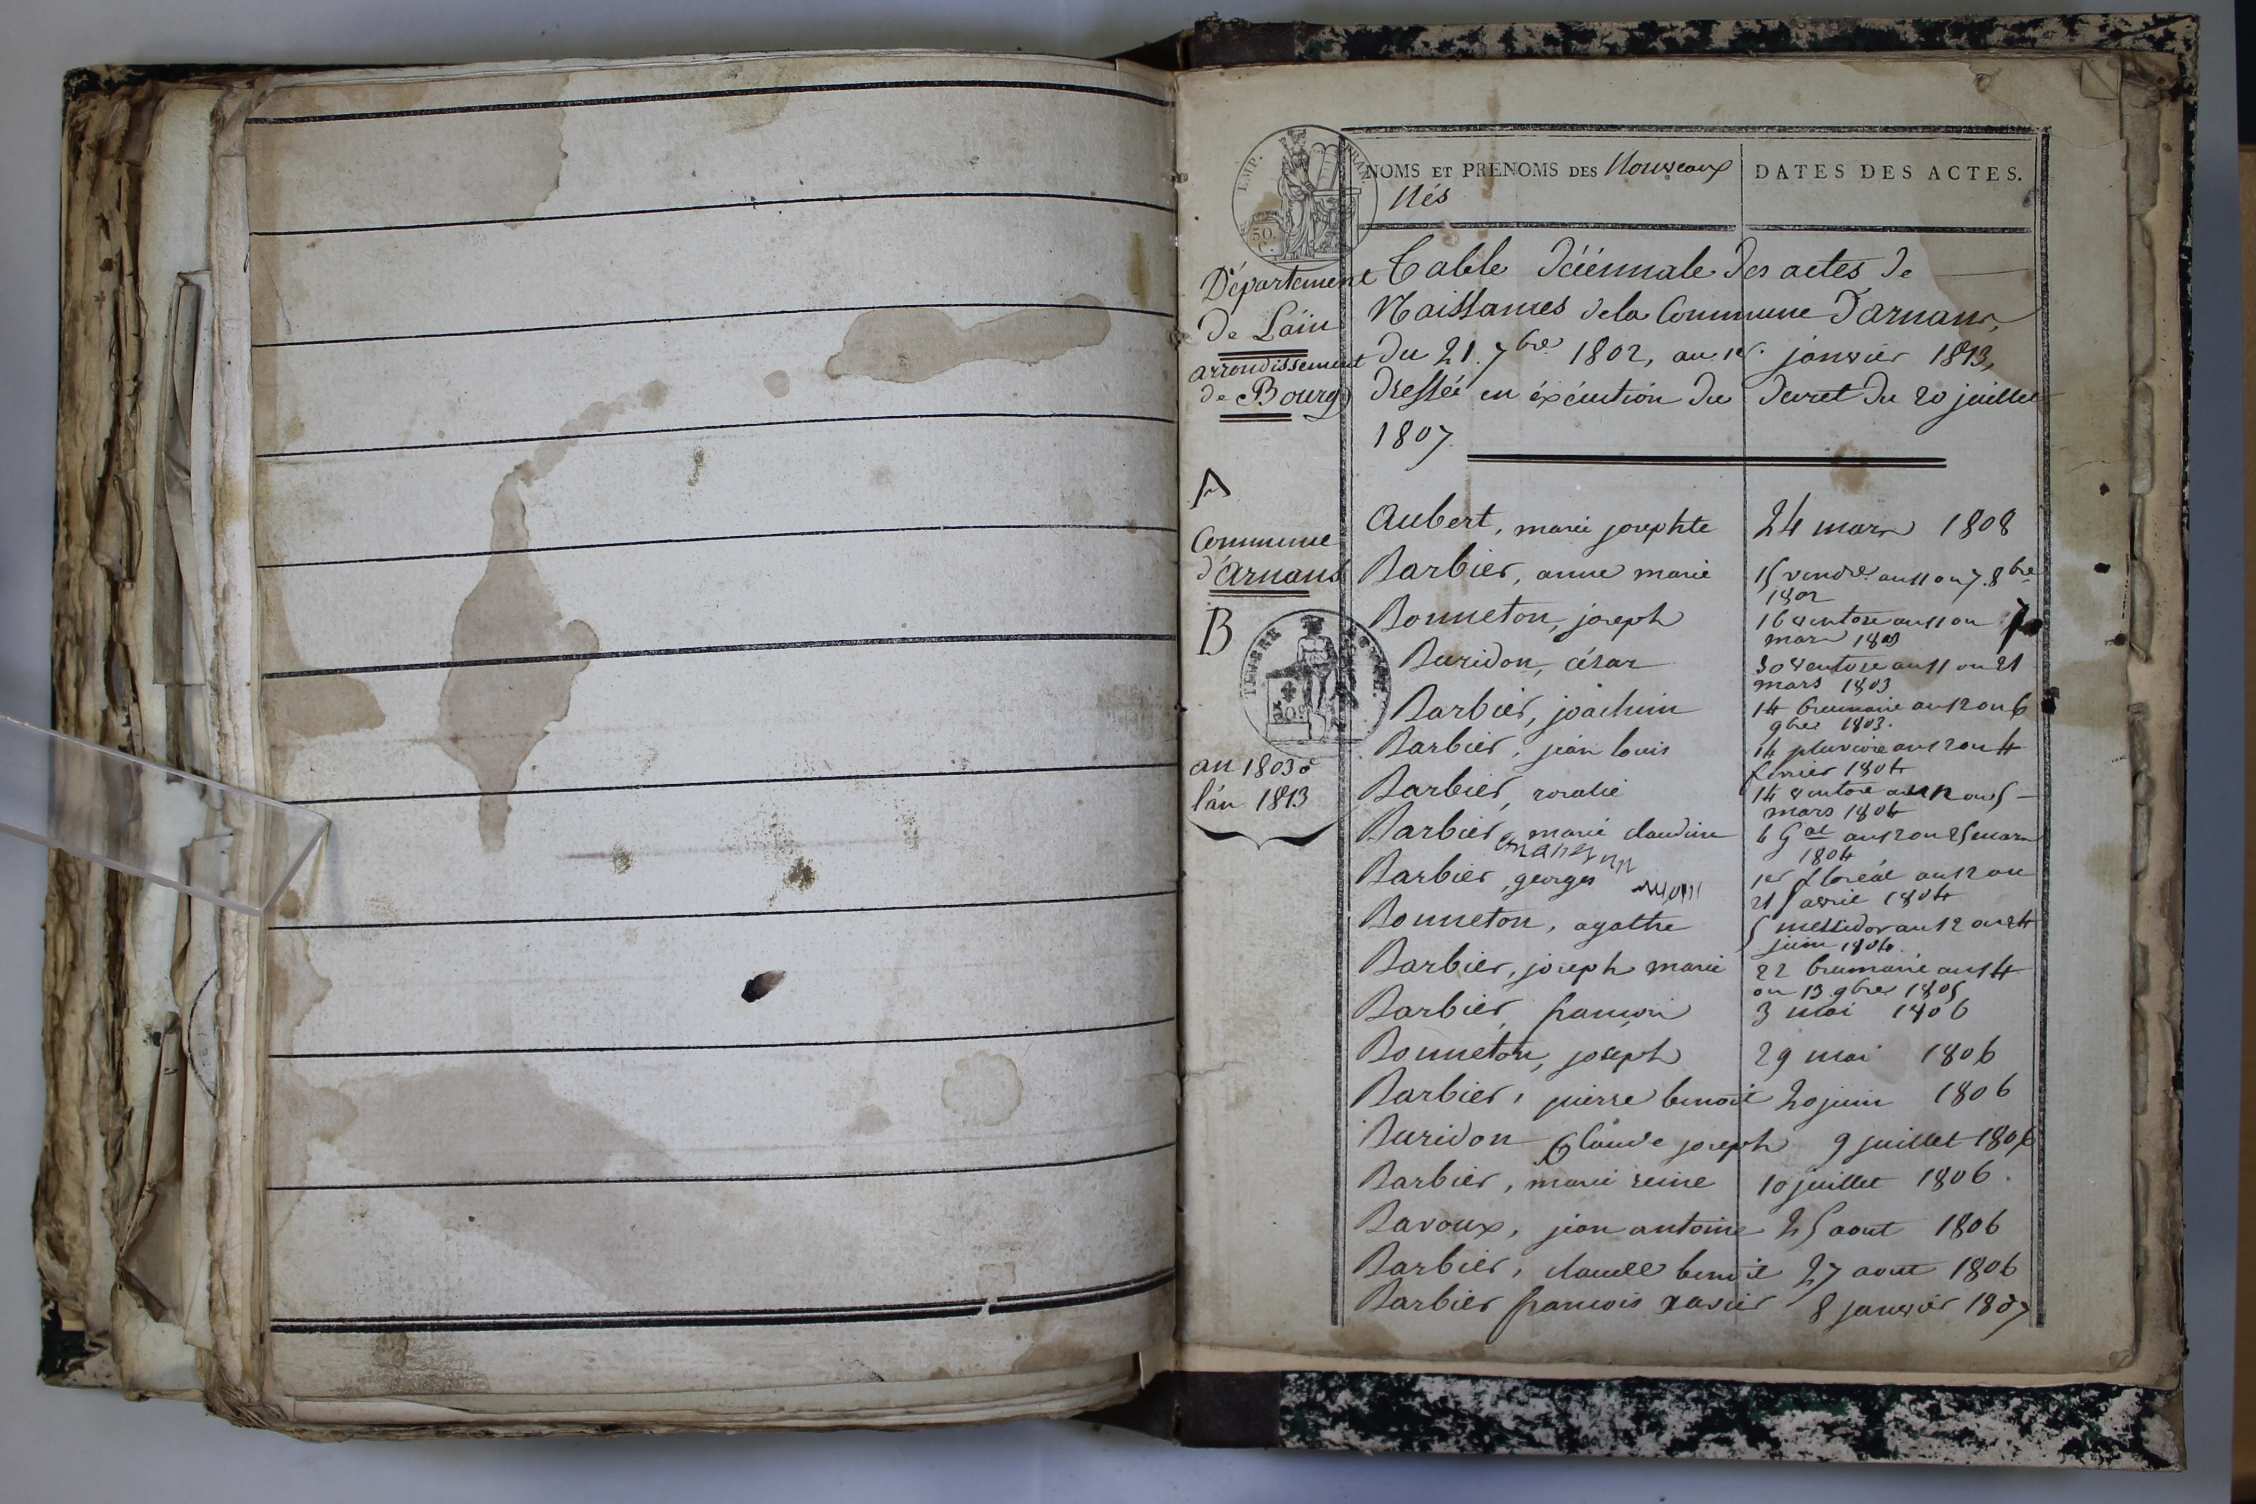 NOMS ET PRENOMS DES Nouveaux
Nés
DATES DES ACTES.
IMP. FRAN.
50.
C.
Département
De Lain
arrondissement
de Bourg
A
Commune
d'Arnans
B
TIMBRE ROYAL
50c
an 1803 à
l'an 1813
Table déciennale des actes de
Naissances dela Commune D'arnans,
Du 21. 7bre 1802, au 1er. janvier 1813,
dressée en éxécution du decret du 20 juillet
1807.
Aubert, marie josephte 24 mars 1808
Barbier, anne marie 15 vendre. an 11 ou 7. 8bre
1802
Bonneton, joseph 16 ventose an 11 ou 7
mars 1803
Buridon, césar 30 ventose an 11 ou 21
mars 1803
Barbier, joachim 14 brumaire an 12 ou 6
9bre 1803.
Barbier, jean louis 14 pluviose an 12 ou 4
février 1804
Barbier, rosalie 14 ventose an 12 ou 5
mars 1804
Barbier, marie claudine 4 Gal an 12 ou 25 mars
1804
Barbier, georges 1er floréal an 12 ou
21 avril 1804
Bonneton, agathe 5 messidor an 12 ou 24
juin 1804.
Barbier, joseph marie 22 brumaire an 14
ou 13 9bre 1805
Barbier, françois 3 mai 1806
Bonneton, joseph 29 mai 1806
Barbier, pierre benoit 20 juin 1806
Buridon Claude joseph 9 juillet 1806
Barbier, marie reine 10 juillet 1806.
Bavoux, jean antoine 25 aout 1806
Barbier, claude benoit 27 aout 1806
Barbier francois xavier 8 janvier 1807